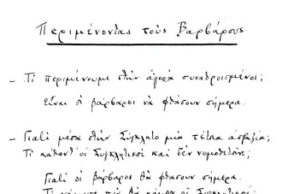 Περιμένοντας τοὺς Βαρβάρους
– Τί περιμένουμε στὴν ἀγορὰ συναθροισμένοι;
Εἶναι οἱ βάρβαροι νὰ φθάσουν σήμερα.
– Γιατί μέσα στὴν Σύγκλητο μιὰ τέτοια ἀπραξία;
Τί κάθοντ' οἱ Συγκλητικοὶ καὶ δὲν νομοθετοῦνε;
Γιατὶ οἱ βάρβαροι θὰ φθάσουν σήμερα.